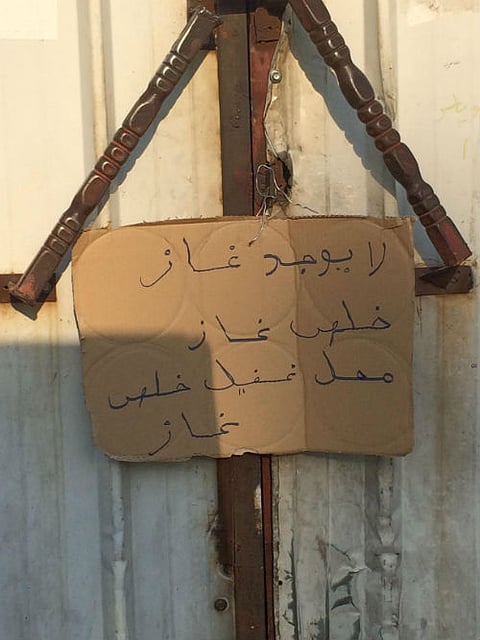 لا يوجد غاز
خلص غاز
محل عقيل خلص
غاز